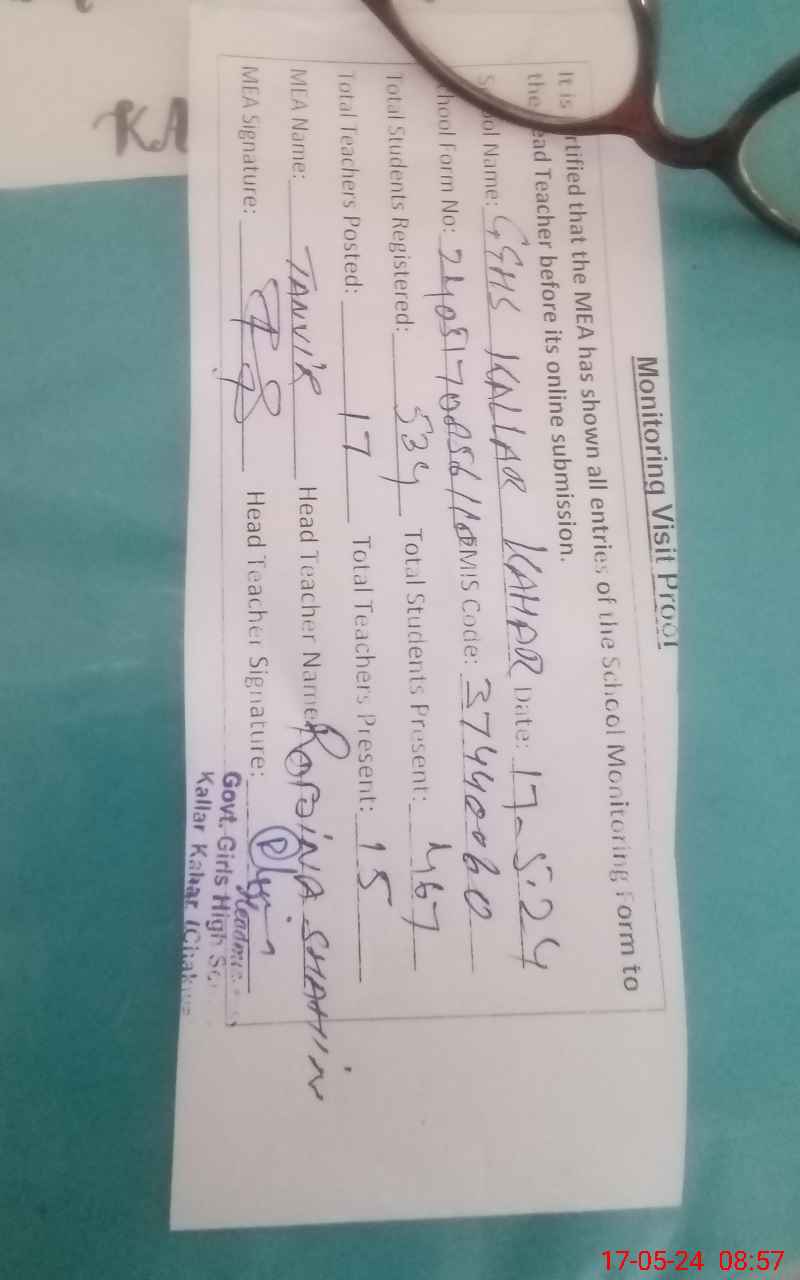 Monitoring Visit Proof
It is rtified that the MEA has shown all entries of the School Monitoring Form to
the ead Teacher before its online submission.
S ool Name: GGHS KALLAR KAHAR Date: 17-5-24
hool Form No: EMIS Code: 37440060
Total Students Registered: 534 Total Students Present: 467
Total Teachers Posted: 17 Total Teachers Present: 15
MEA Name: TANVIR Head Teacher Name: RobiNA SHAHiN
MEA Signature: Head Teacher Signature:
Headmis
Govt. Girls High Sc
Kallar Kahar (Chakwal
KA
17-05-24 08:57